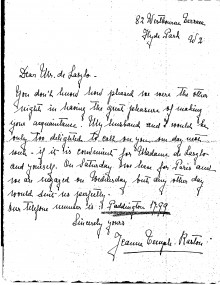 82 Westbourne Terrace
Hyde Park W2
Dear Mr. de Laszlo.
You don't know how pleased we were the other
night in having the great pleasure of making
your acquaintance. My husband and I would be
only too delighted to call on you one day next
week if it is convenient for Madame de Laszlo
and yourself. On Saturday we leave for Paris and
we are engaged on Wednesday but any other day
would suit us perfectly.
Our telefone number is: Paddington 1799
Sincerely yours
Jeanne Temple